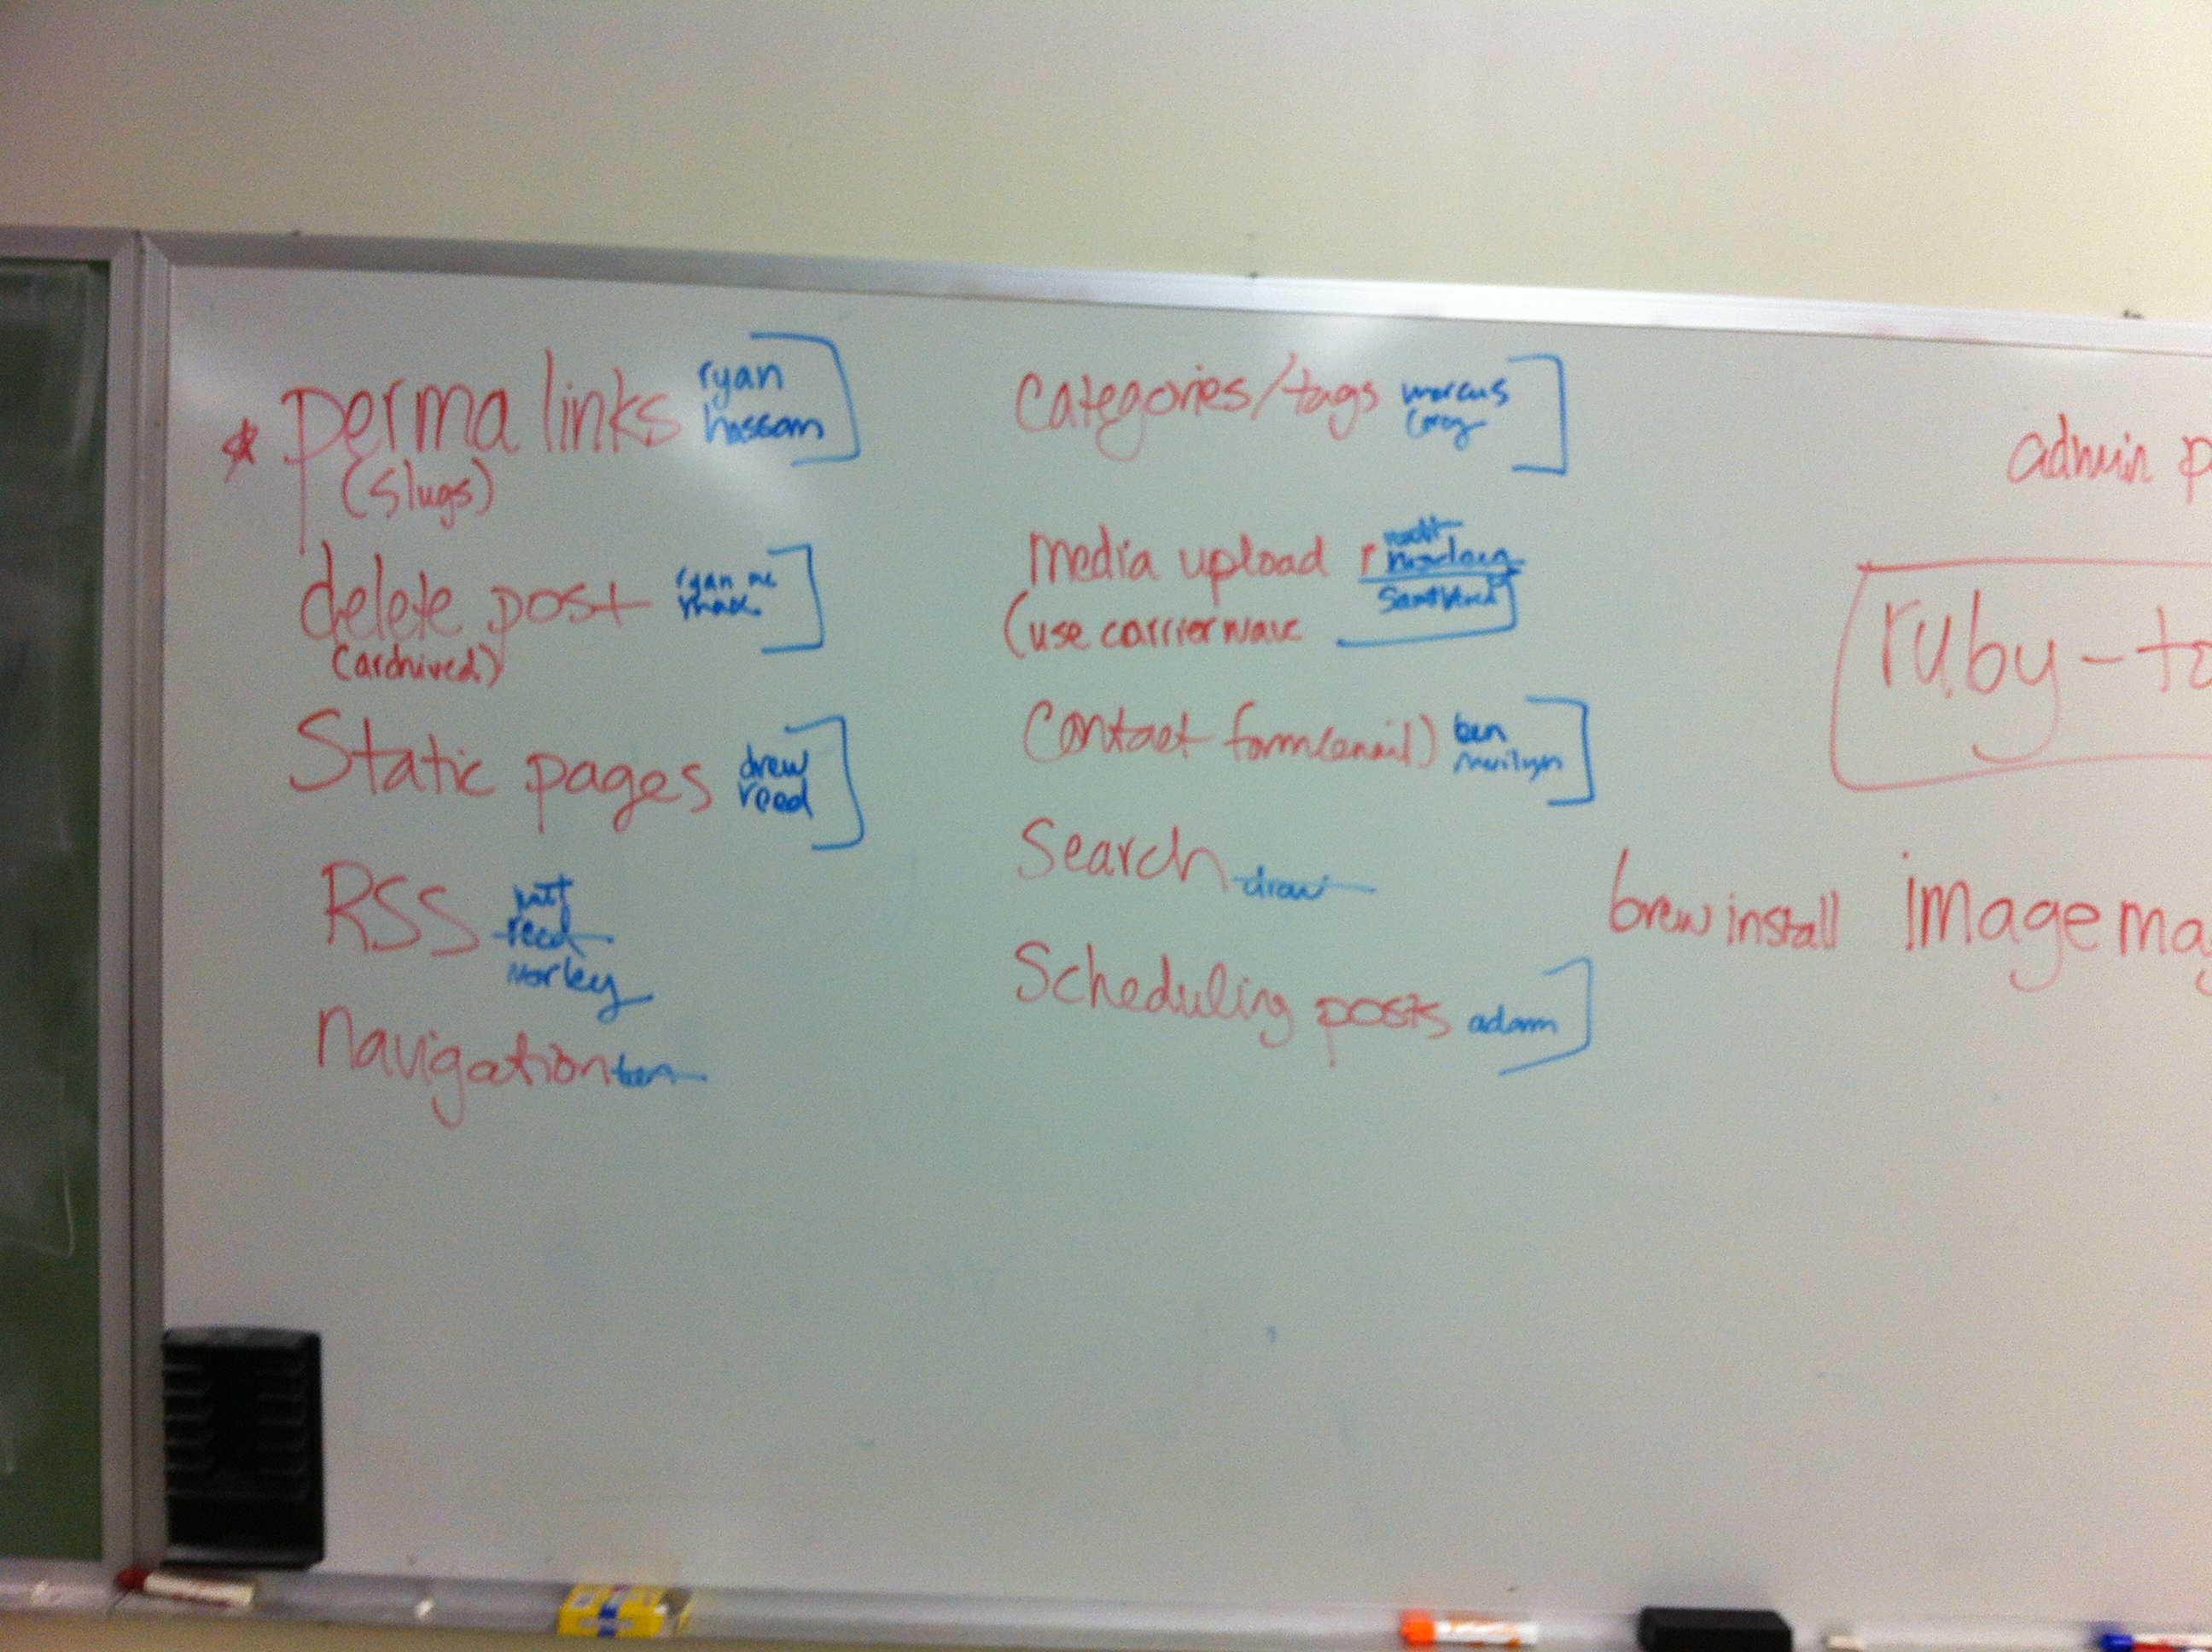 perma links ryan
hassam
(slugs)
delete post ryan mc
max
(archived)
Static pages drew
reed
RSS matt
reed
Morley
navigation ben
categories/tags marcus
Corey
media upload
(use carrierwave
contact form(email) ben
marilyn
Search drew
Scheduling posts adam
admin p
ruby-to
brew install imagema